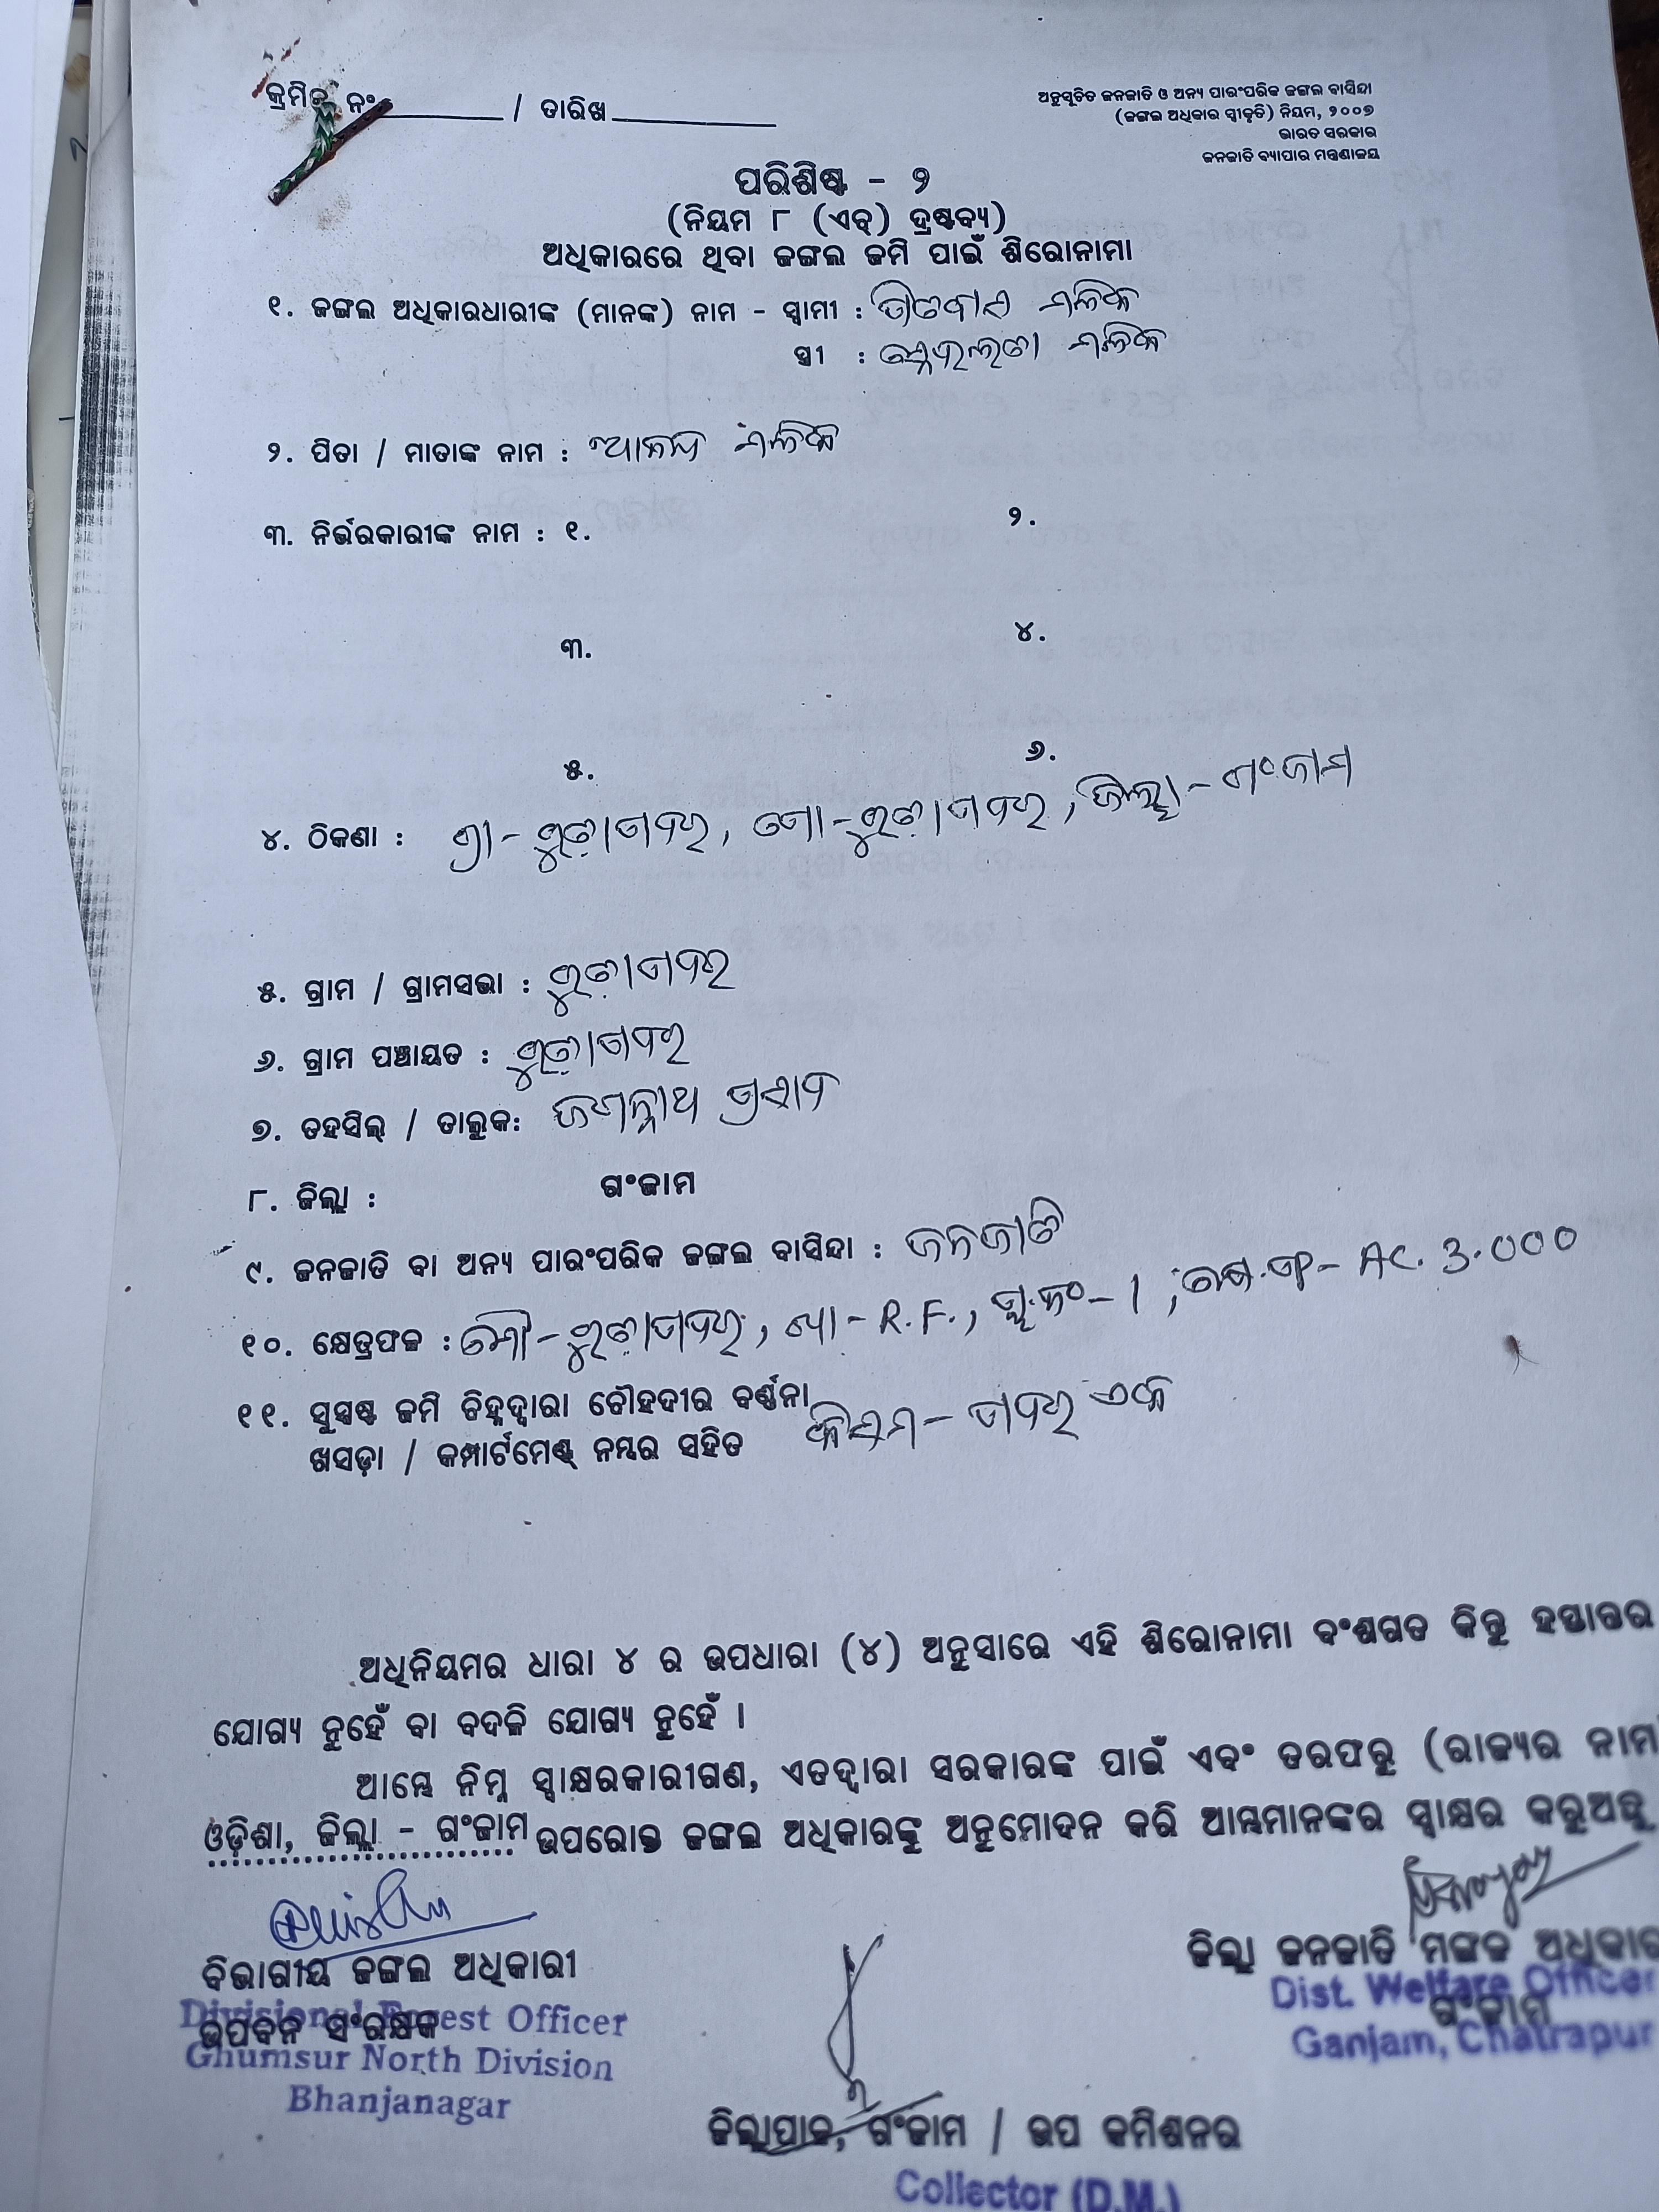 କ୍ରମିକ ନଂ / ତାରିଖ
ଅନୁସୂଚିତ ଜନଜାତି ଓ ଅନ୍ୟ ପାରଂପରିକ ଜଙ୍ଗଲ ବାସିନ୍ଦା
(ଜଙ୍ଗଲ ଅଧିକାର ସ୍ୱୀକୃତି) ନିୟମ, ୨୦୦୭
ଭାରତ ସରକାର
ଜନଜାତି ବ୍ୟାପାର ମନ୍ତ୍ରଣାଳୟ
ପରିଶିଷ୍ଟ - ୨
(ନିୟମ ୮ (ଏଚ୍) ଦ୍ରଷ୍ଟବ୍ୟ)
ଅଧିକାରରେ ଥିବା ଜଙ୍ଗଲ ଜମି ପାଇଁ ଶିରୋନାମା
୧. ଜଙ୍ଗଲ ଅଧିକାରଧାରୀଙ୍କ (ମାନଙ୍କ) ନାମ - ସ୍ୱାମୀ : ମଲିକ
ସ୍ତ୍ରୀ : ସ୍ନେହଲତା ମଲିକ
୨. ପିତା / ମାତାଙ୍କ ନାମ : ଆନନ୍ଦ ମଲିକ
୩. ନିର୍ଭରକାରୀଙ୍କ ନାମ : ୧. ୨.
୩. ୪.
୫. ୬.
୪. ଠିକଣା : ଗ୍ରା - , ପୋ - , ଜିଲ୍ଲା - ଗଂଜାମ
୫. ଗ୍ରାମ / ଗ୍ରାମସଭା :
୬. ଗ୍ରାମ ପଞ୍ଚାୟତ :
୭. ତହସିଲ୍ / ତାଲୁକ: ଜଗନ୍ନାଥ ପ୍ରସାଦ
୮. ଜିଲ୍ଲା : ଗଂଜାମ
୯. ଜନଜାତି ବା ଅନ୍ୟ ପାରଂପରିକ ଜଙ୍ଗଲ ବାସିନ୍ଦା : ଜନଜାତି
୧୦. କ୍ଷେତ୍ରଫଳ : ମୌ - , ଖା - R.F., ପ୍ଲ.ନଂ - 1, AC. 3.000
୧୧. ସୁସ୍ପଷ୍ଟ ଜମି ଚିହ୍ନଦ୍ୱାରା ଚୌହଦୀର ବର୍ଣ୍ଣନା କିସମ -
ଖସଡ଼ା / କମ୍ପାର୍ଟମେଣ୍ଟ୍ ନମ୍ବର ସହିତ
ଅଧିନିୟମର ଧାରା ୪ ର ଉପଧାରା (୪) ଅନୁସାରେ ଏହି ଶିରୋନାମା ବଂଶଗତ କିନ୍ତୁ ହସ୍ତାନ୍ତର
ଯୋଗ୍ୟ ନୁହେଁ ବା ବଦଳି ଯୋଗ୍ୟ ନୁହେଁ ।
ଆମ୍ଭେ ନିମ୍ନ ସ୍ୱାକ୍ଷରକାରୀଗଣ, ଏତଦ୍ୱାରା ସରକାରଙ୍କ ପାଇଁ ଏବଂ ତରଫରୁ (ରାଜ୍ୟର ନାମ
ଓଡ଼ିଶା, ଜିଲ୍ଲା - ଗଂଜାମ ଉପରୋକ୍ତ ଜଙ୍ଗଲ ଅଧିକାରଙ୍କୁ ଅନୁମୋଦନ କରି ଆମ୍ଭମାନଙ୍କର ସ୍ୱାକ୍ଷର କରୁଅଛୁ
ବିଭାଗୀୟ ଜଙ୍ଗଲ ଅଧିକାରୀ
Divisional Forest Officer
ଉପବନ ସଂରକ୍ଷକ
Ghumsur North Division
Bhanjanagar
ଜିଲ୍ଲା ଜନଜାତି ମଙ୍ଗଳ
Dist. Welfare Officer
ଗଂଜାମ
Ganjam, Chatrapur
ଜିଲ୍ଲାପାଳ, ଗଂଜାମ / ଉପ କମିଶନର
Collector (D.M.)